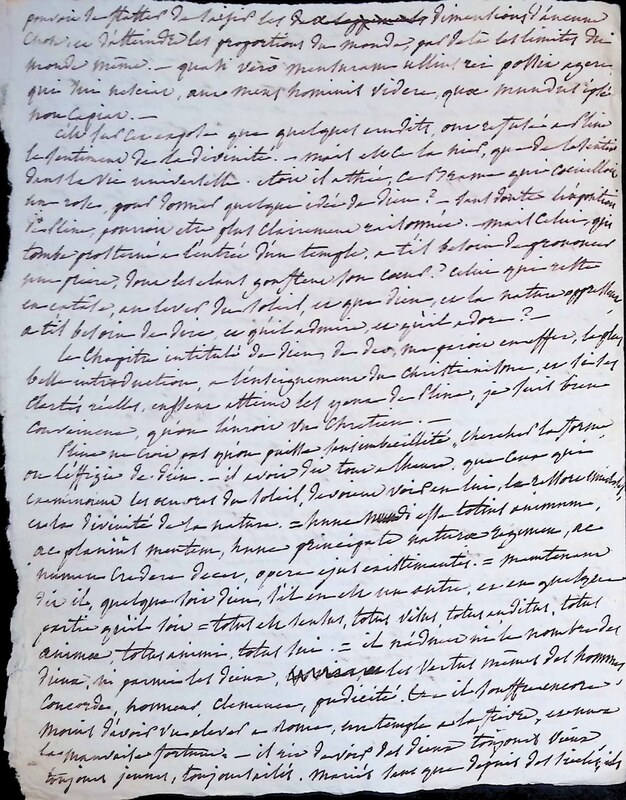 pouvoir se flatter de saisir les dimensions d'aucune
chose, et d'atteindre les proportions du monde, par delà les limites du
monde même. — quasi vero mensuram ullius rei possit agere
qui sui nesciat, aut mens hominis videre, quae mundus ipse
non capiat. —
C'est sur ces mots que quelques érudits, ont refusé a Pline
le sentiment de la divinité. — mais est ce la nier, que de la sentir
dans la vie universelle. etoit il athée, ce que cueilloit
une rose, pour donner quelque idée de dieu? — sans doute l'exposition
de Pline, pourroit etre plus clairement raisonnée. — mais celui, qui
tombe prosterné a l'entrée d'un temple, a t'il besoin de prononcer
une priere, dont les elans gonflent son coeur? celui qui reste
en extase, au lever du soleil, et que dieu, et la nature
a t'il besoin de dire, ce qu'il admire, et qu'il adore? —
Le Chapitre intitulé de dieu, de deo, me paroit en effet, la plus
belle introduction, a l'enseignement du Christianisme, et si ses
clartés réelles, eussent atteint les yeux de Pline, je suis bien
convaincue, qu'on l'auroit vu Chretien. —
Pline ne croit pas qu'on puisse sans imbecillité, chercher la forme
ou l'effigie de dieu. — il avoit dit tout a l'heure, que ceux qui
examinoient les oeuvres du soleil, devoient voir en lui,
et la divinité de la nature. = hunc mundi esse totius animum,
ac planius mentem, hunc principale naturae regimen, ac
numen credere decet, opera ejus aestimantes. = maintenant
dit il, quelque soit dieu, s'il en est un autre, et en quelque
partie qu'il soit = totus est sensus, totus visus, totus auditus, totus
animae, totus animi, totus sui. = il n'admet ni le nombre des
dieux, ni parmi les dieux, les vertus mêmes des hommes
Concorde, honneur, clemence, pudicité. — il souffre encore
moins d'avoir vu elever a Rome, un temple a la fievre, et un a
la mauvaise fortune. — il rit de voir des dieux toujours vieux
toujours jeunes, toujours ailés. mariés sans que depuis des siecles, ils